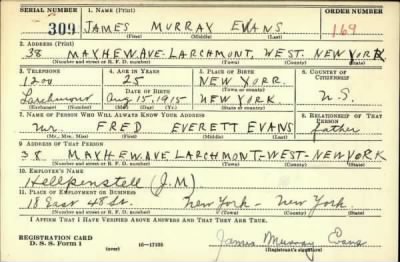 SERIAL NUMBER 1. NAME (Print) ORDER NUMBER
309 JAMES MURRAY EVANS 169
(First) (Middle) (Last)
2. ADDRESS (Print)
38 MAYHEW.AVE-LARCHMONT, WEST. NEW YORK
(Number and street or R. F. D. number) (Town) (County) (State)
3. TELEPHONE 4. AGE IN YEARS 5. PLACE OF BIRTH 6. COUNTRY OF CITIZENSHIP
1200 25 NEW YORK.
DATE OF BIRTH (Town or county)
Larchmont Aug 15, 1915 NEW YORK. U.S.
(Exchange) (Number) (Mo.) (Day) (Yr.) (State or country)
7. NAME OF PERSON WHO WILL ALWAYS KNOW YOUR ADDRESS 8. RELATIONSHIP OF THAT PERSON
Mr. FRED EVERETT EVANS father
(Mr., Mrs., Miss) (First) (Middle) (Last)
9. ADDRESS OF THAT PERSON
38 MAYHEW.AVE LARCHMONT-WEST-NEW YORK
(Number and street or R. F. D. number) (Town) (County) (State)
10. EMPLOYER'S NAME
(J.M)
11. PLACE OF EMPLOYMENT OR BUSINESS
18 East 48 St. New York - New York.
(Number and street or R. F. D. number) (Town) (County) (State)
I AFFIRM THAT I HAVE VERIFIED ABOVE ANSWERS AND THAT THEY ARE TRUE.
REGISTRATION CARD
D. S. S. Form 1 (over) 16-17105 James Murray Evans
(Registrant's signature)